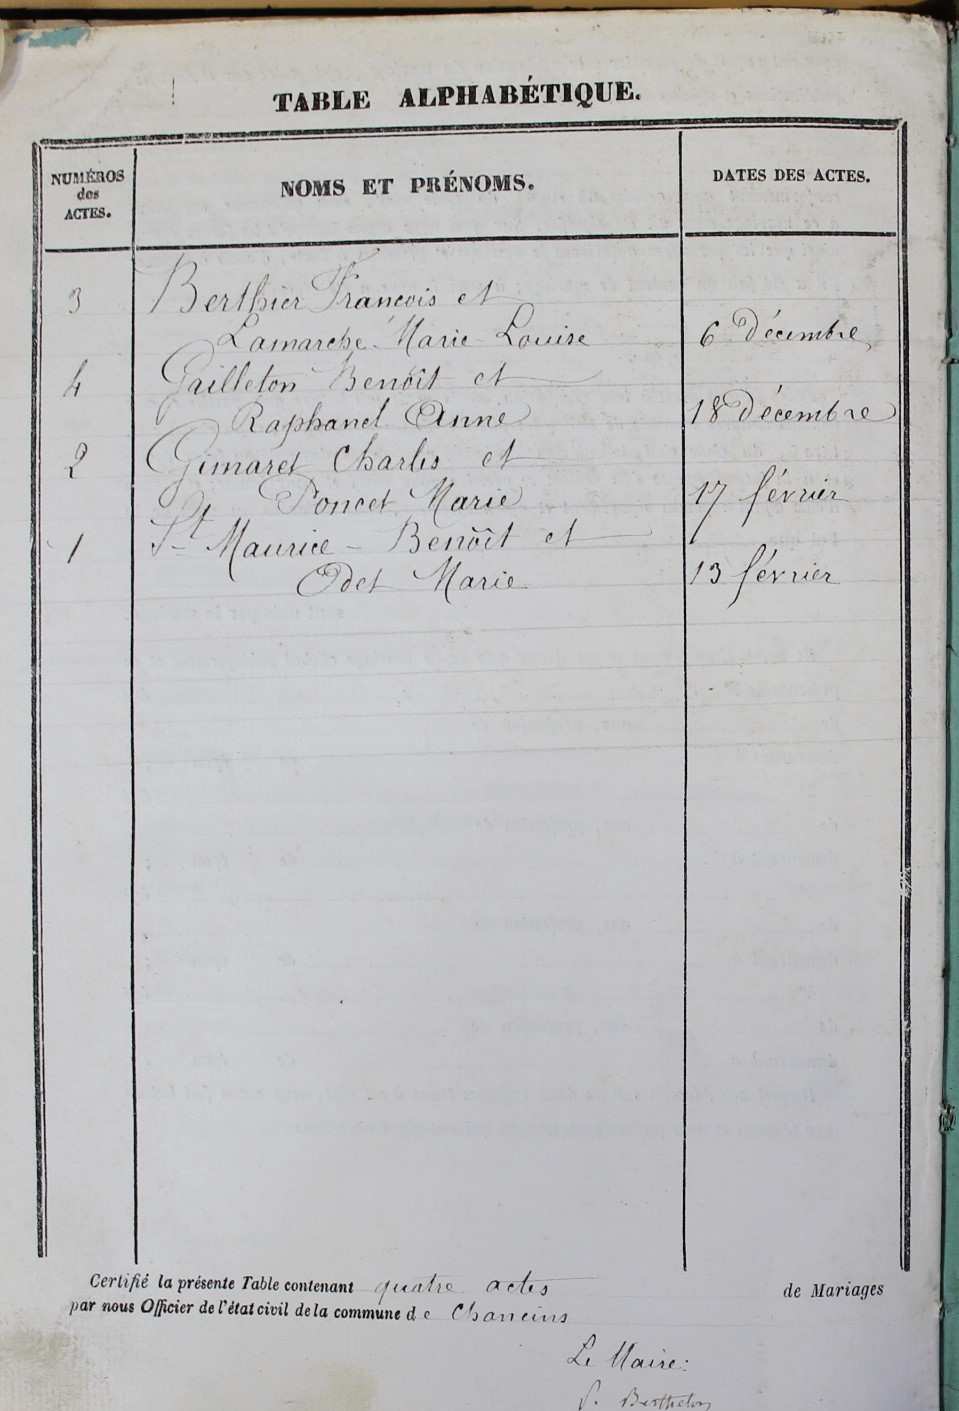 TABLE ALPHABÉTIQUE.
NUMÉROS des ACTES.
NOMS ET PRÉNOMS.
DATES DES ACTES.
3 Berthier François et
Lamarche Marie Louise 6 Décembre
4 Gailleton Benoît et
Raphanel Anne 18 Décembre
2 Gimaret Charles et
Poncet Marie 17 février
1 St Maurice - Benoît et
Odet Marie 13 février
Certifié la présente Table contenant quatre actes de Mariages
par nous Officier de l'état civil de la commune de Chaneins
Le Maire:
P. Berthelon